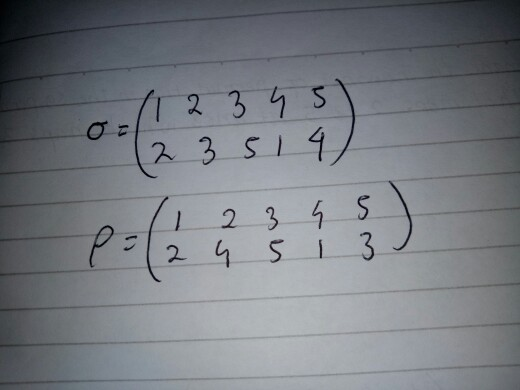 σ = (1 2 3 4 5
2 3 5 1 4)
ρ = (1 2 3 4 5
2 4 5 1 3)